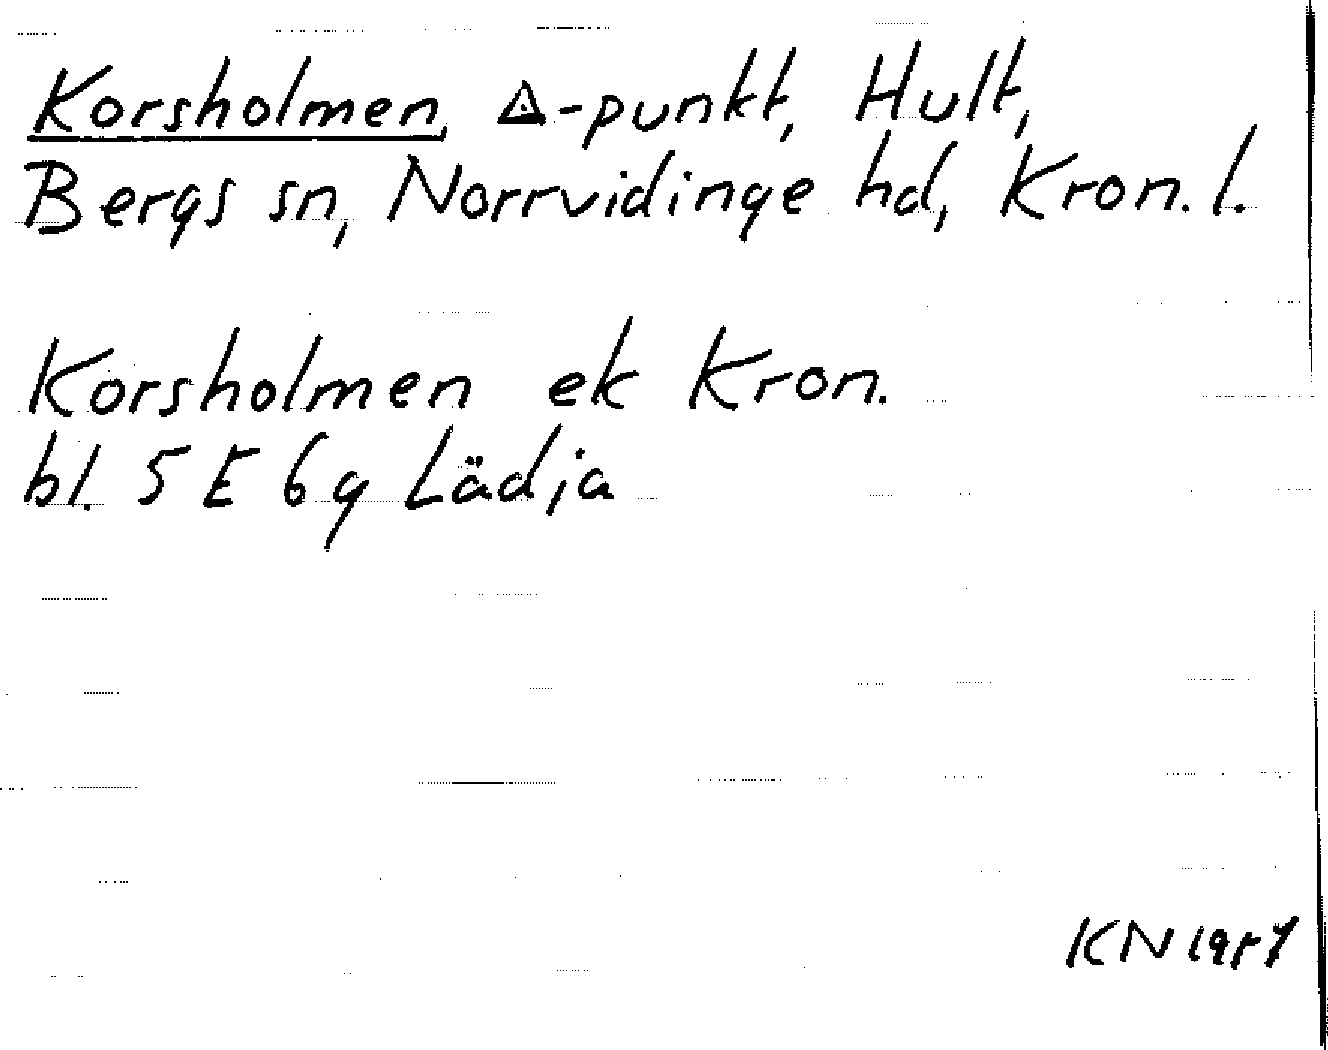 Korsholmen, △-punkt, Hult,
Bergs sn, Norrvidinge hd, Kron. l.
Korsholmen ek Kron.
bl. 5 E 6 g Lädja
KN